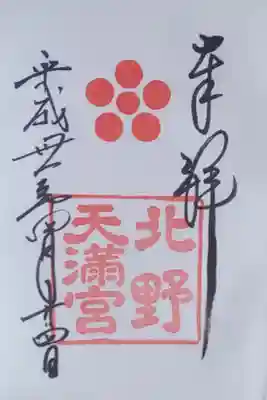 奉拝
北野
天満宮
平成丗一年四月廿四日